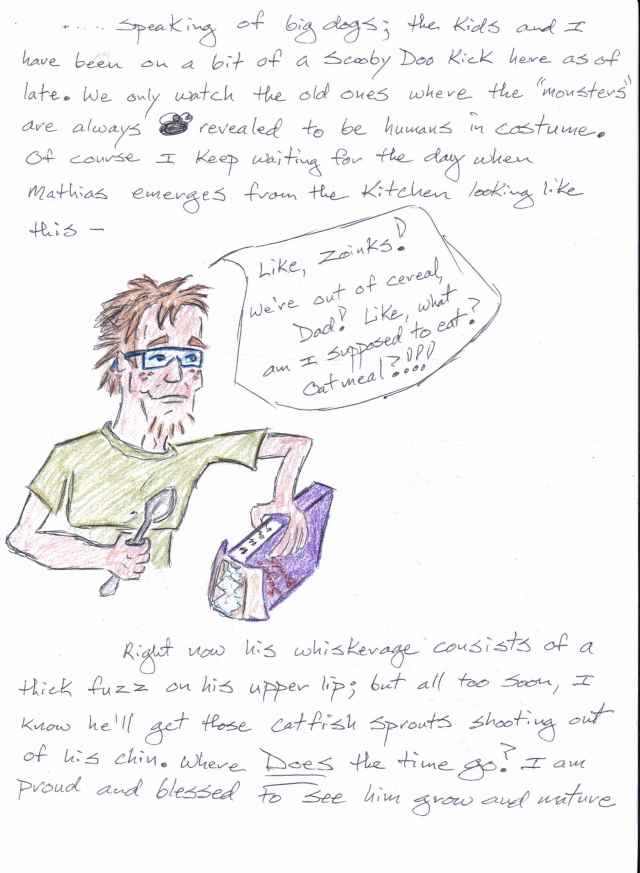 ..... Speaking of big dogs; the kids and I
have been on a bit of a Scooby Doo kick here as of
late. We only watch the old ones where the "monsters"
are always revealed to be humans in costume.
Of course I keep waiting for the day when
Mathias emerges from the kitchen looking like
this —
Like, Zoinks!
We're out of cereal,
Dad! Like, what
am I supposed to eat?
Oatmeal?!!!!
Right now his whiskerage consists of a
thick fuzz on his upper lip; but all too soon, I
know he'll get those catfish sprouts shooting out
of his chin. Where Does the time go? I am
proud and blessed to see him grow and mature